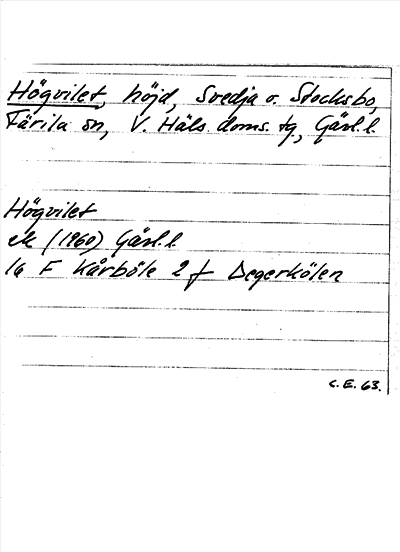 Högvilet, höjd, Svedja o. Stocksbo,
Färila sn, V. Häls. doms. tg., Gävl. l.
Högvilet
ek (1960) Gävl. l.
16 F Kårböle 2 f Degerkölen
C.E. 63.